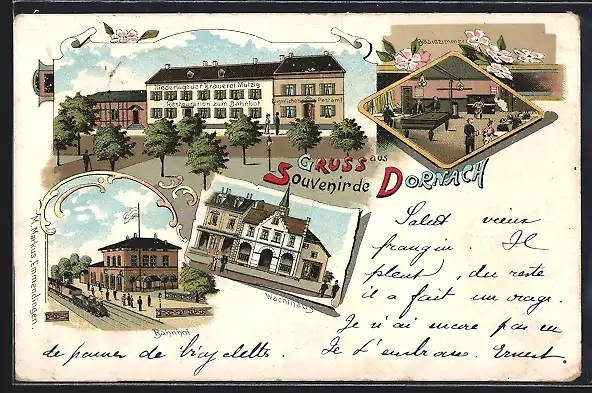 Billardzimmer
Niederlage der Brauerei Mutzig
Restauration zum Bahnhof
Kaiserliches Postamt
GRUSS aus
Souvenir de DORNACH
Wachthaus
Bahnhof
M. Markus, Emmendingen.
Salut vieux
frangin. Il
pleut, du reste
il a fait un orage.
Je n'ai encore pas eu
de panne de bicyclette. Je t'embrasse. Ernest